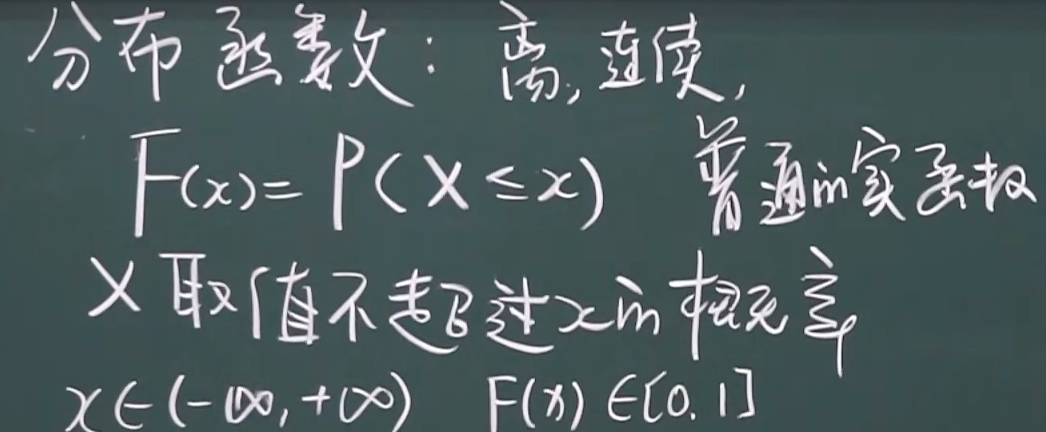 分布函数：离,连续,
F(x)=P(X≤x) 普通的实函数
X取值不超过x的概率
x∈(-∞,+∞) F(x)∈[0.1]